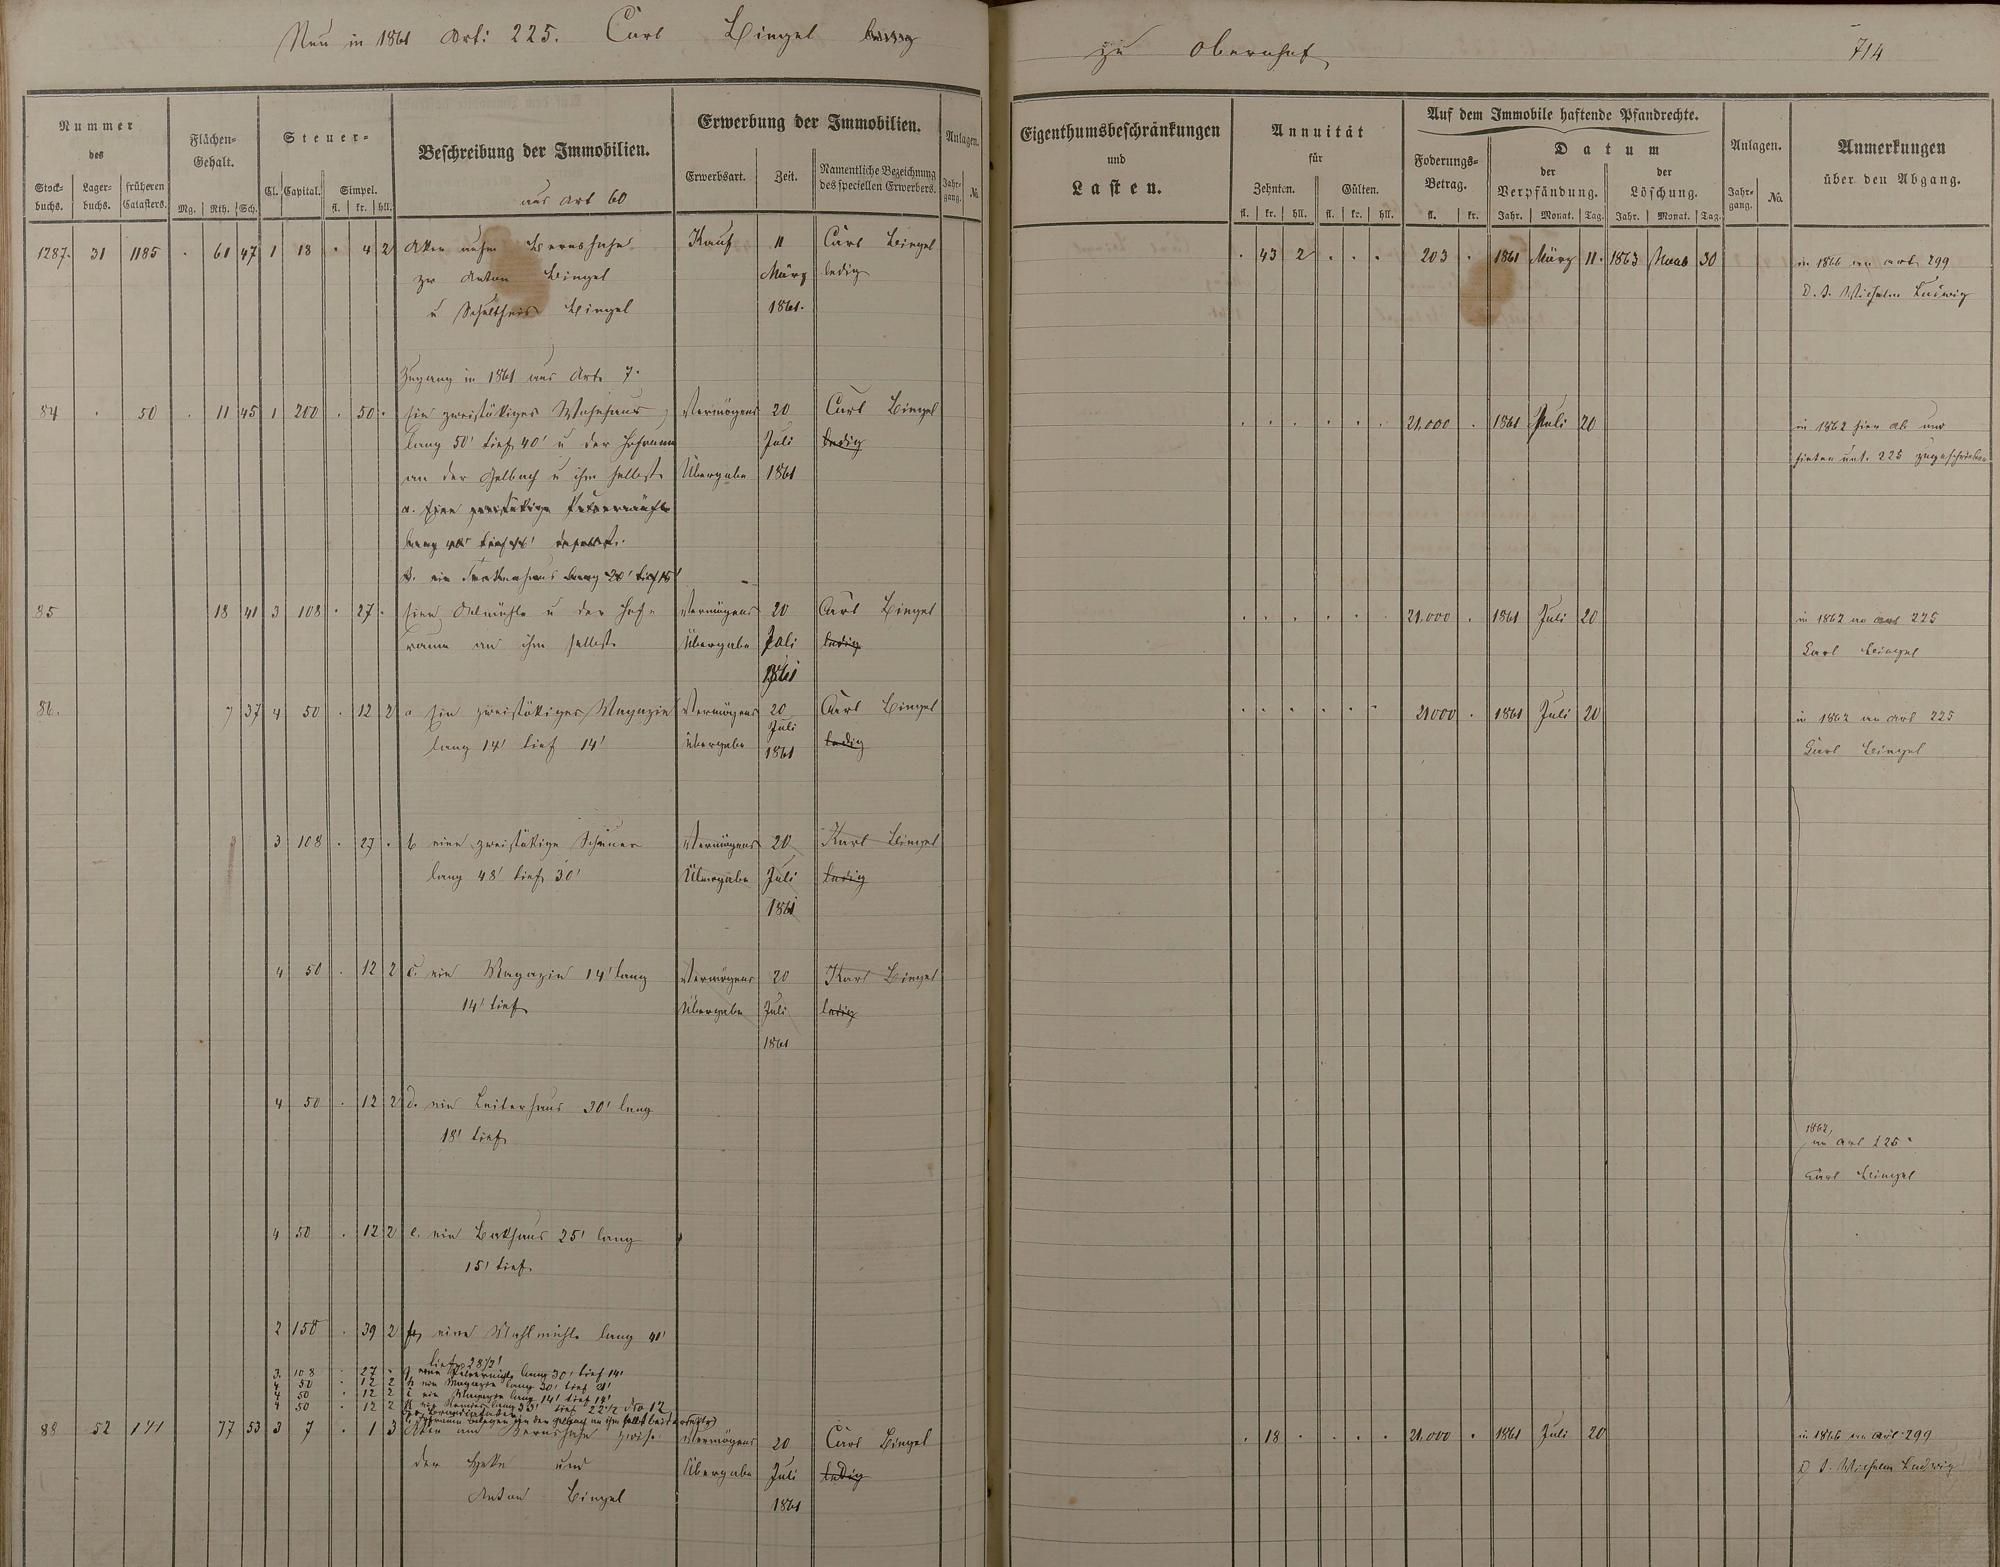 Neu in 1861 Art: 225. Carl Bingel
zu Obernhof
714
Nummer
des
Stock-
buchs.
Lager-
buchs.
früheren
Catasters.
Flächen-
Gehalt.
Mg. Rth. Sch.
Steuer-
Cl. Capital. Simpel.
fl. kr. hll.
Beschreibung der Immobilien.
aus Art 60
Erwerbung der Immobilien.
Erwerbsart. Zeit.
Namentliche Bezeichnung
des speciellen Erwerbers.
Anlagen.
Jahr-
gang. No.
Eigenthumsbeschränkungen
und
Lasten.
Annuität
für
Zehnten. Gülten.
fl. kr. hll. fl. kr. hll.
Auf dem Immobile haftende Pfandrechte.
Foderungs-
Betrag.
fl. kr.
Datum
der
Verpfändung.
Jahr. Monat. Tag.
der
Löschung.
Jahr. Monat. Tag.
Anlagen.
Jahr-
gang. No.
Anmerkungen
über den Abgang.
1287. 31 1185 . 61 47 1 18 . 4 2 Kauf 11 Carl Bingel . 43 2 . . . 203 . 1861 März 11. 1863 30 in 1866 an art 299
zw Anton Bingel März ledig D. J. Wilhelm Ludwig
u Schultheis Bingel 1861.
Zugang in 1861 aus Art. 7.
84 . 50 . 11 45 1 200 . 50 . Ein zweistökiges Wohnhaus Vermögens 20 Carl Bingel . . . . . . 21,000 . 1861 Juli 20 in 1862 hier ab und
lang 50' tief 40' u der Hofraum Juli ledig hinten unt. 225 zugeschrieben
an der Gelbach u ihm selbst Übergabe 1861
85 18 41 3 108 . 27 . Eine Oelmühle u der Hof- Vermögens 20 Carl Bingel . . . . . . 21,000 . 1861 Juli 20 in 1862 an art 225
raum an ihm selbst Übergabe Juli ledig Carl Bingel
1861
86. 7 37 4 50 . 12 2 a Ein zweistökiges Magazin Vermögens 20 Carl Bingel . . . . . . 21000 . 1861 Juli 20 in 1862 an art 225
lang 14' tief 14' Übergabe Juli 1861 ledig Carl Bingel
3 108 . 27 . b eine zweistökige Scheuer Vermögens 20 Karl Bingel
lang 48' tief 30' Übergabe Juli ledig
1861
4 50 . 12 2 c. ein Magazin 14' lang Vermögens 20 Karl Bingel
14' tief Übergabe Juli ledig
1861
4 50 . 12 2 d. ein 30' lang
18' tief
1862
an art 225
Carl Bingel
4 50 . 12 2 e. ein Bakhaus 25' lang
15' tief
2 150 . 39 2 eine Mahlmühle lang 40'
tief 28 1/2'
3 108 . 27 . lang 30' tief 14'
4 50 . 12 2 h ein Magazin lang 30' tief
4 50 . 12 2 i ein Magazin lang 14' tief 14'
4 50 . 12 2 k ein tief 22 1/2
88 52 141 77 53 3 7 . 1 3 Vermögens 20 Carl Bingel . 18 . . . . 21,000 . 1861 Juli 20 in 1866 an art 299
der und Übergabe Juli ledig D. J. Wilhelm Ludwig
Anton Bingel 1861